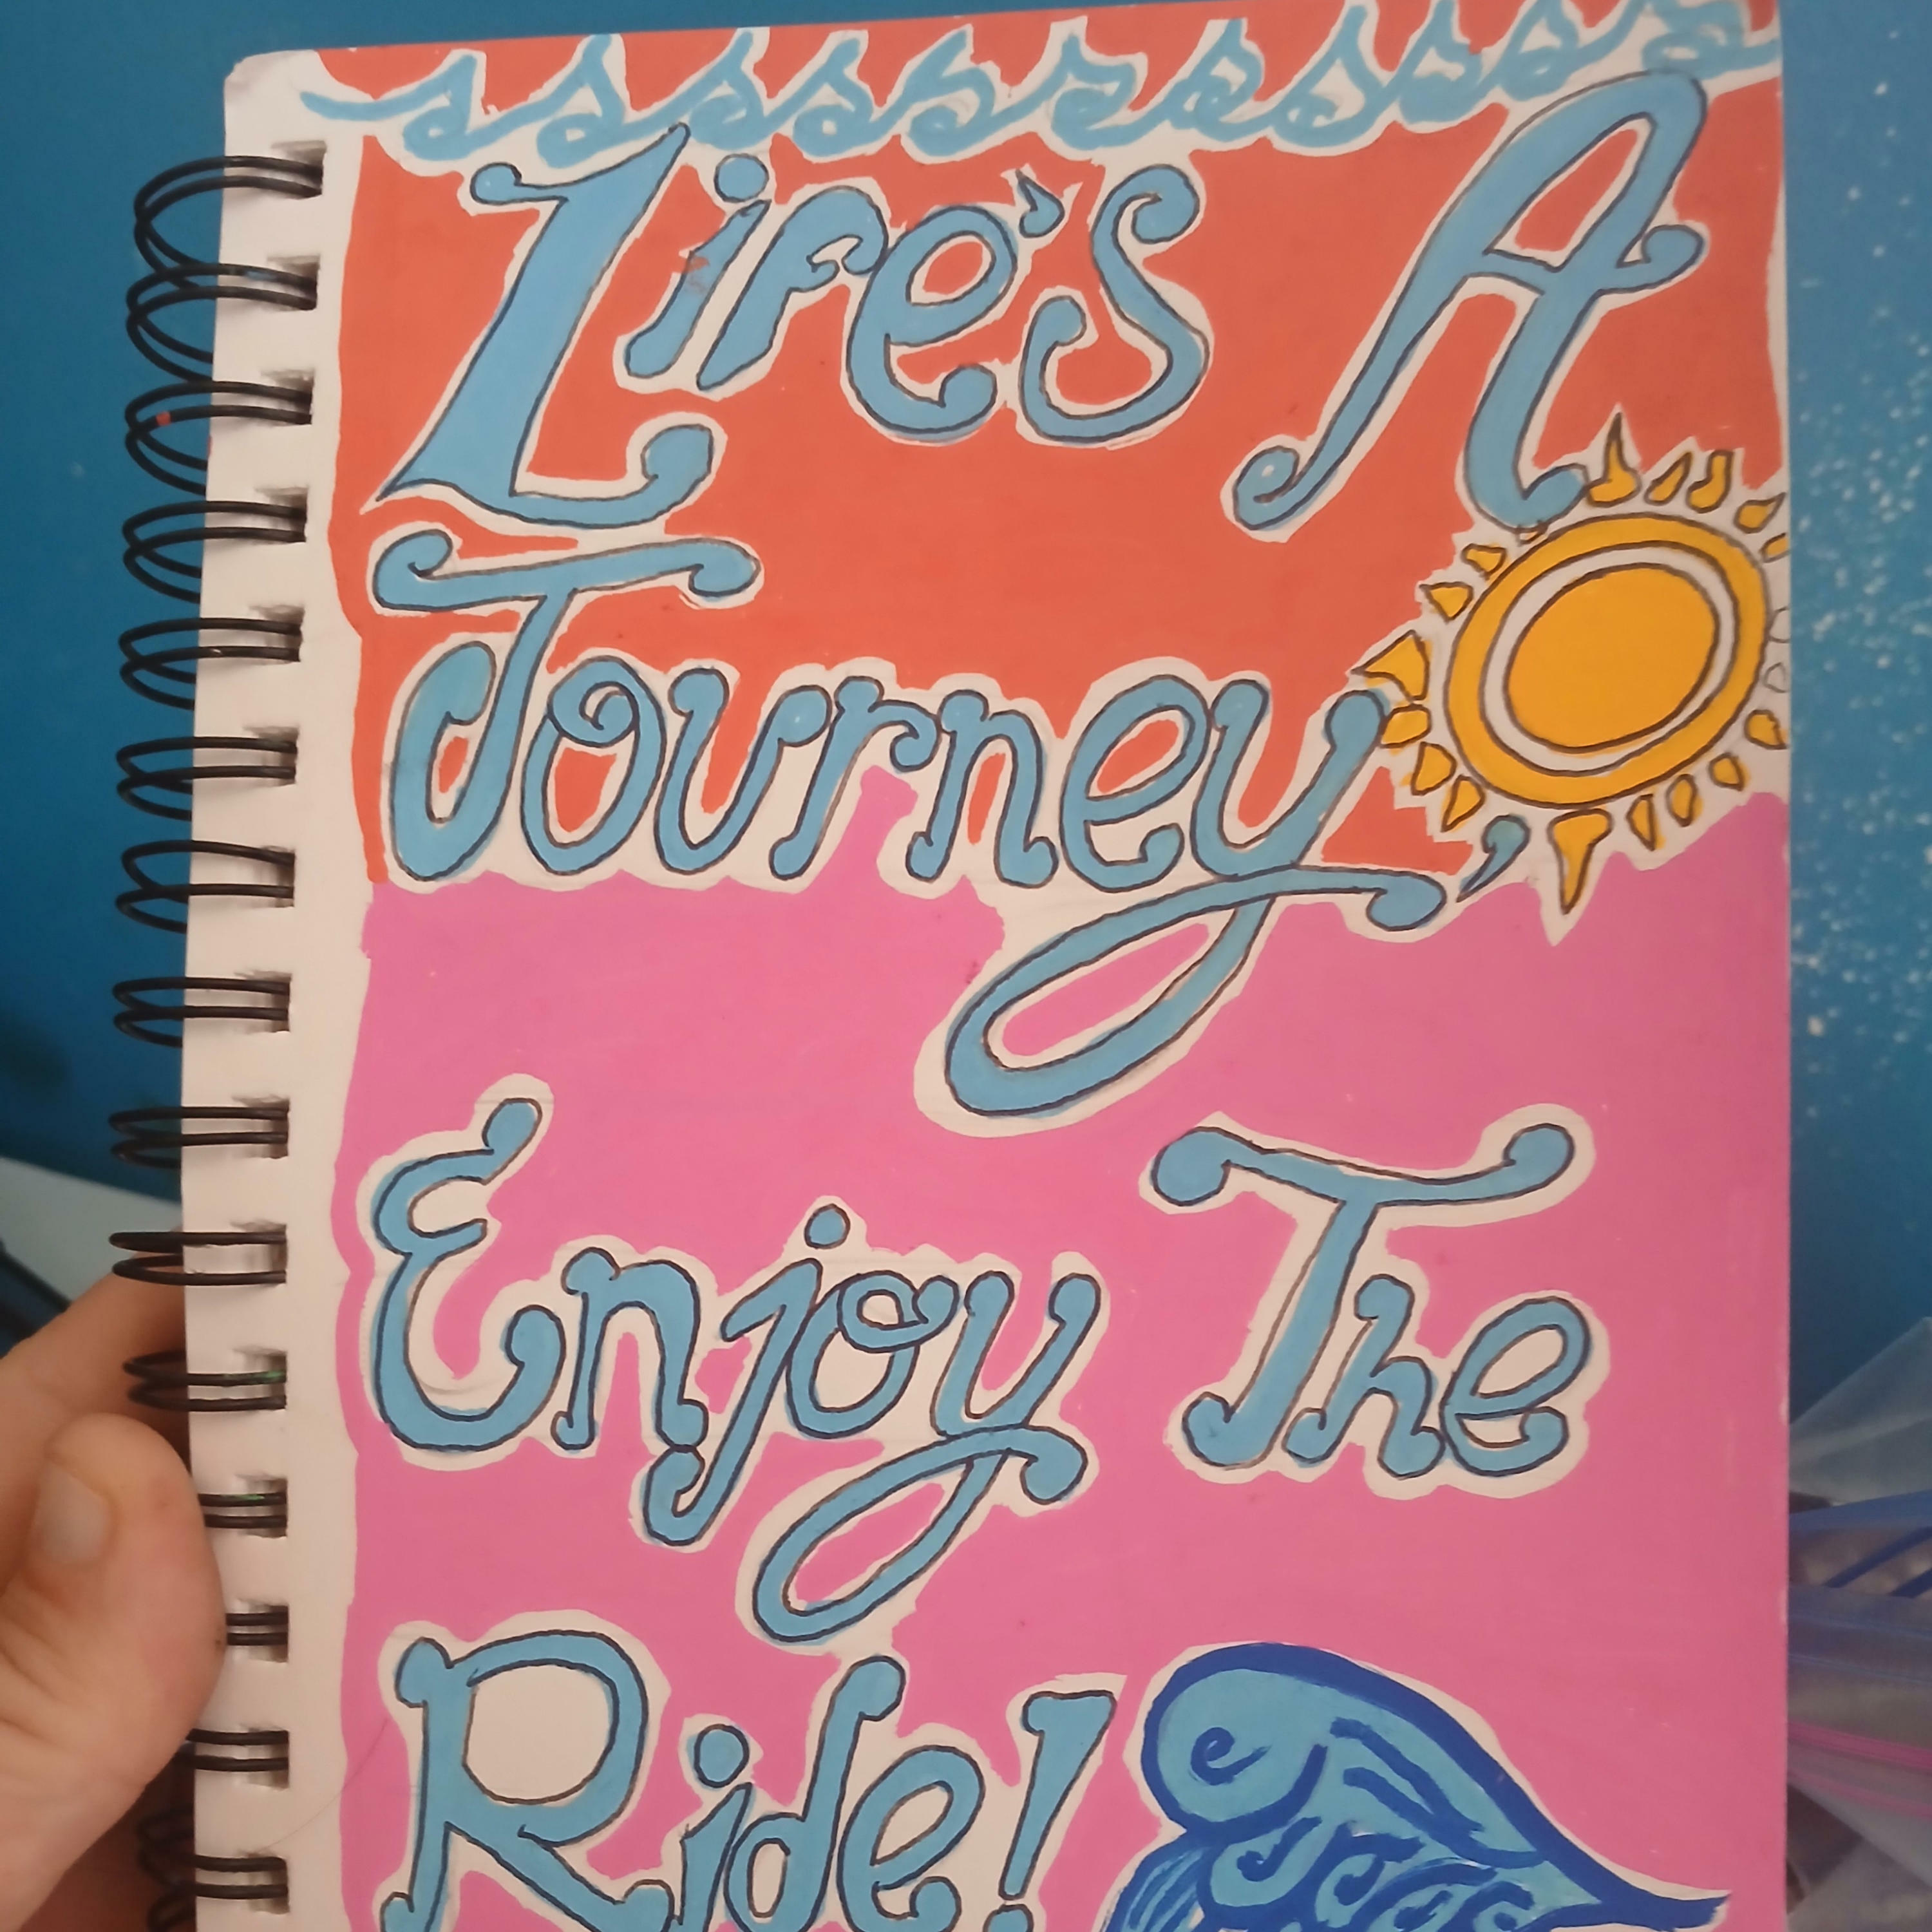 Life's A
Journey,
Enjoy The
Ride!